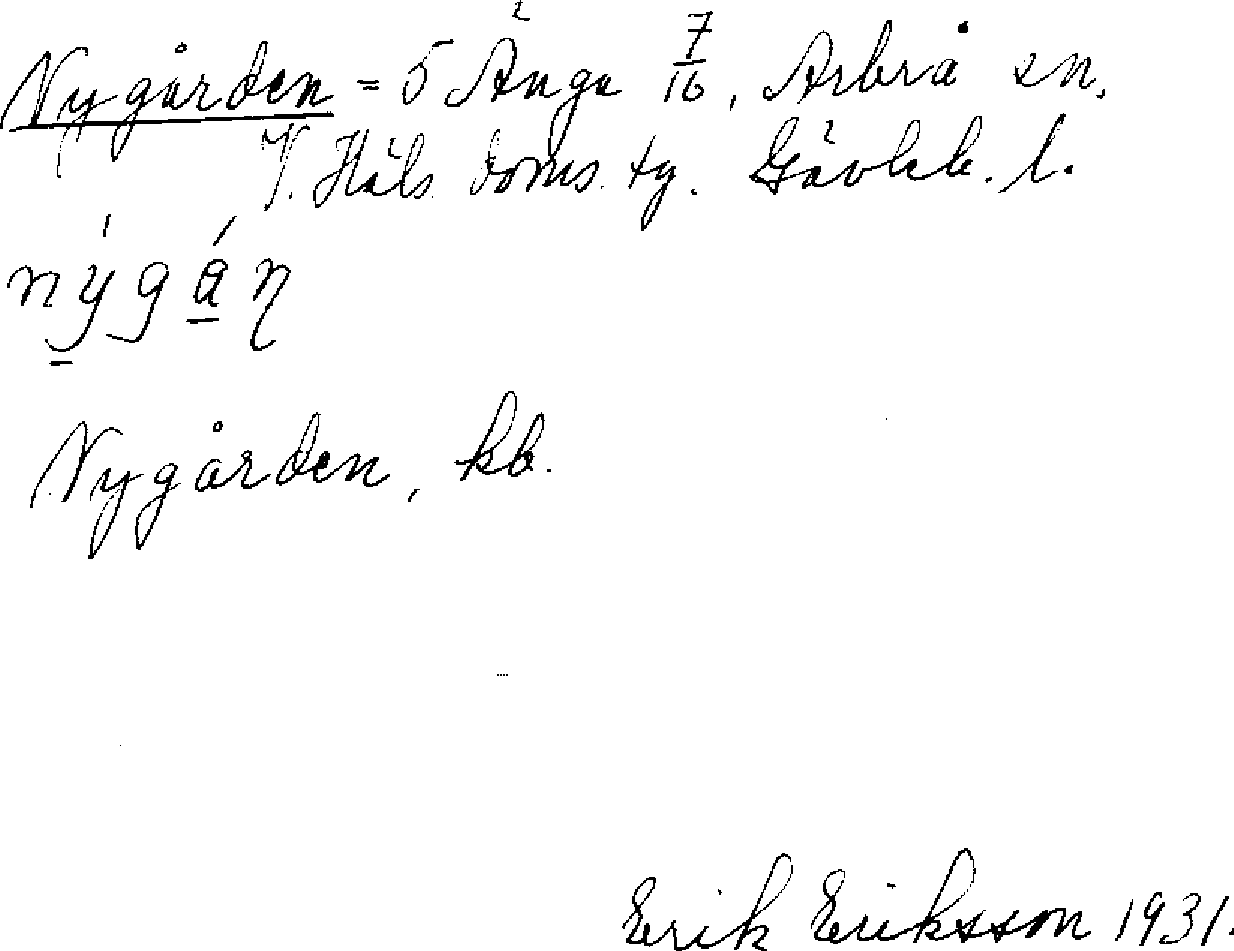 Nygården = 5 Änga 7/16, Arbrå sn.
V. Häls. doms. tg. Gävleb. l.
nýgán
Nygården, kb.
Erik Eriksson 1931.